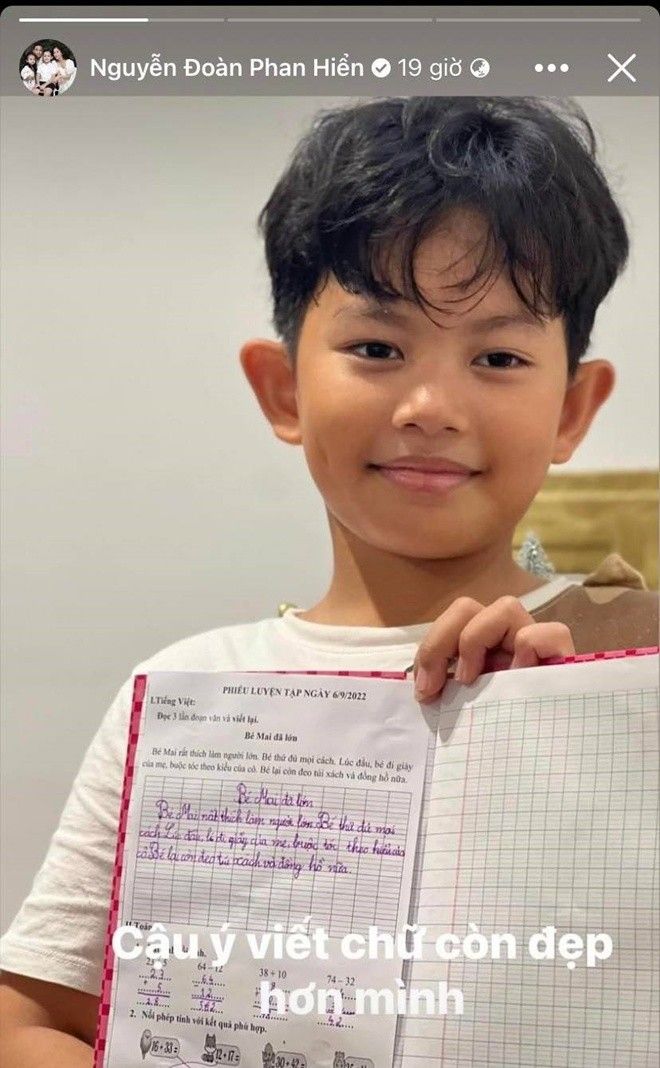 Nguyễn Đoàn Phan Hiển 19 giờ
PHIẾU LUYỆN TẬP NGÀY 6/9/2022
I.Tiếng Việt:
Đọc 3 lần đoạn văn và viết lại.
Bé Mai đã lớn
Bé Mai rất thích làm người lớn. Bé thử đủ mọi cách. Lúc đầu, bé đi giày
của mẹ, buộc tóc theo kiểu của cô. Bé lại còn đeo túi xách và đồng hồ nữa.
Bé Mai đã lớn
Bé Mai rất thích làm người lớn. Bé thử đủ mọi
cách. Lúc đầu, bé đi giấy của mẹ, buộc tóc theo kiểu của
cô Bé lại còn đeo túi xách và đồng hồ nữa.
II.Toán
Cậu ý viết chữ còn đẹp
hơn mình
64 - 12
38 + 10
74 - 32
2. Nối phép tính với kết quả phù hợp.
16 + 33 =
12 + 17 =
30 + 42 =